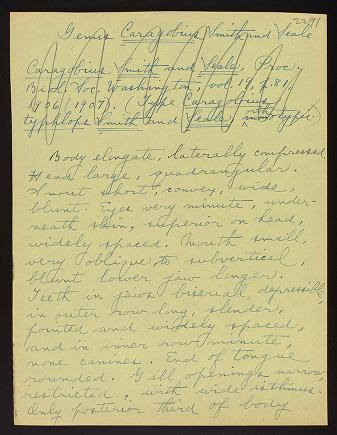 2291
Genus Caragobius Smith and Seale
Caragobius Smith and Seale, Proc.
Biol. Soc. Washington, vol. 19, p. 81,
1906 (1907). (Type Caragobius
typhlops Smith and Seale, monotypic.
Body elongate, laterally compressed.
Head large, quadrangular.
Snout short, convex, wide,
blunt. Eyes very minute, under-
neath skin, superior on head,
widely spaced. Mouth small,
very oblique to subvertical,
blunt lower jaw longer.
Teeth in jaws biserial, depressible,
in outer row long, slender,
pointed and widely spaced,
and in inner row minute,
none canines. End of tongue
rounded. Gill openings narrow,
restricted, with wide isthmus.
Only posterior third of body